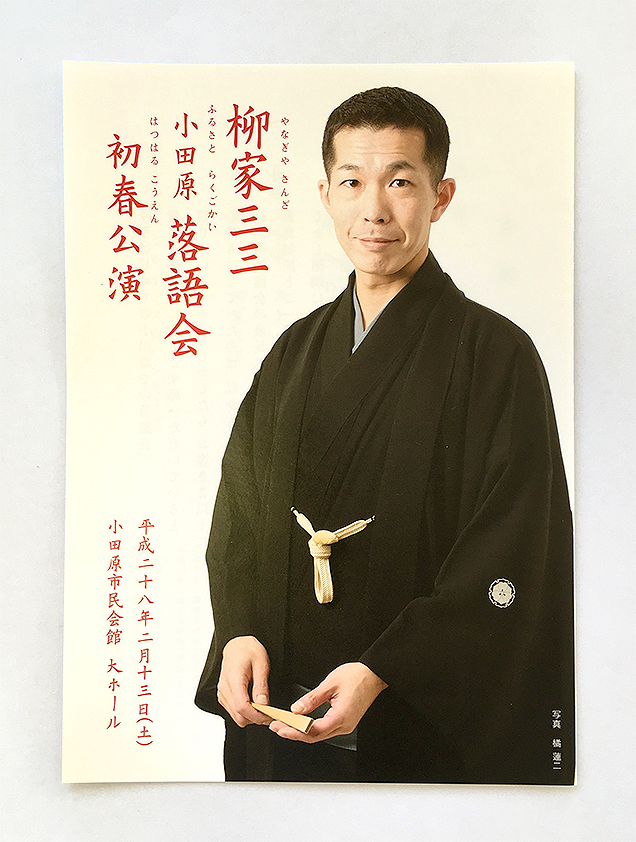 やなぎや さんざ
柳家三三
ふるさと らくごかい
小田原 落語会
はつはる こうえん
初春公演
平成二十八年二月十三日(土)
小田原市民会館 大ホール
写真 橘 蓮二